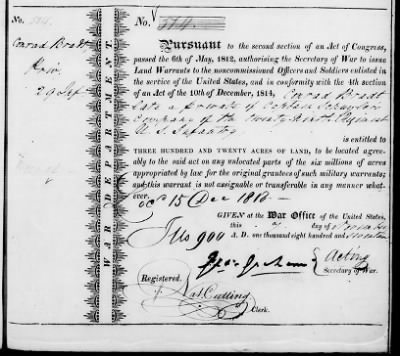 No. 514.
Conrad Bradt
Priv.
29 Inf
WAR DEPARTMENT.
No. 514.
Pursuant to the second section of an Act of Congress,
passed the 6th of May, 1812, authorising the Secretary of War to issue
Land Warrants to the noncommissioned Officers and Soldiers enlisted in
the service of the United States, and in conformity with the 4th section
of an Act of the 10th of December, 1814, Conrad Bradt
late a private of Captain
Company of the Twenty Ninth Regiment
U. S. Infantry
is entitled to
THREE HUNDRED AND TWENTY ACRES OF LAND, to be located agreeably
to the said act on any unlocated parts of the six millions of acres
appropriated by law for the original grantees of such military warrants;
and this warrant is not assignable or transferable in any manner whatever.
15 Dec
GIVEN at the War Office of the United States,
this 7 day of
A. D. one thousand eight hundred and
900
Geo: Graham
Acting
Secretary of War.
Registered.
Nat. Cutting
Clerk.